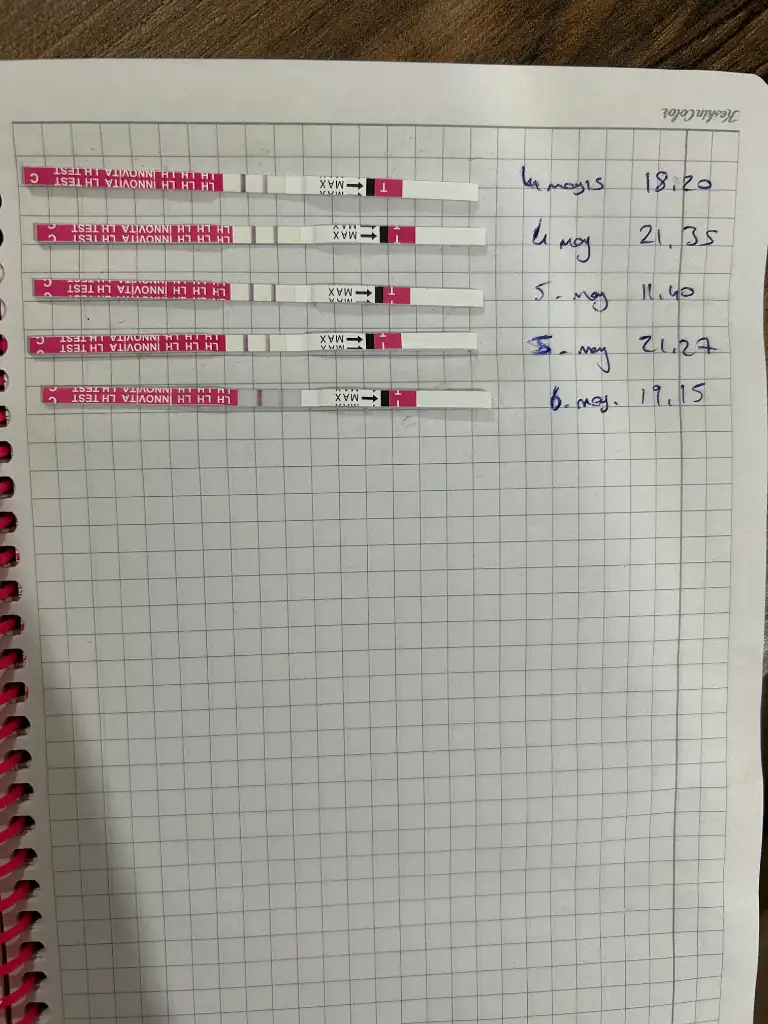 KeskinColor
C LH TEST INNOVITA LH LH LH LH MAX T 4 mayıs 18.20
C LH TEST INNOVITA LH LH LH LH MAX T 4 may 21.35
C LH TEST INNOVITA LH LH LH LH MAX T 5. may 11.40
C LH TEST INNOVITA LH LH LH LH MAX T 5. may 21.27
C LH TEST INNOVITA LH LH LH LH MAX T 6. may. 19.15